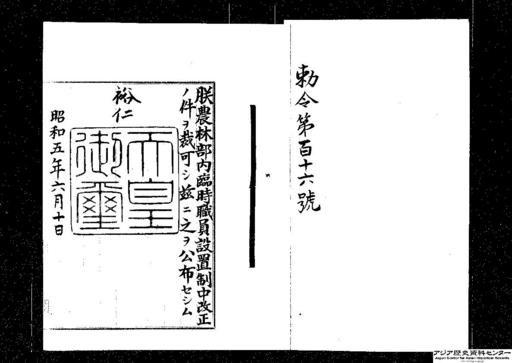 勅令第百十六號
朕農林部内臨時職員設置制中改正
ノ件ヲ裁可シ茲ニ之ヲ公布セシム
裕仁
天皇
御璽
昭和五年六月十日
アジア歴史資料センター
Japan Center for Asian Historical Records